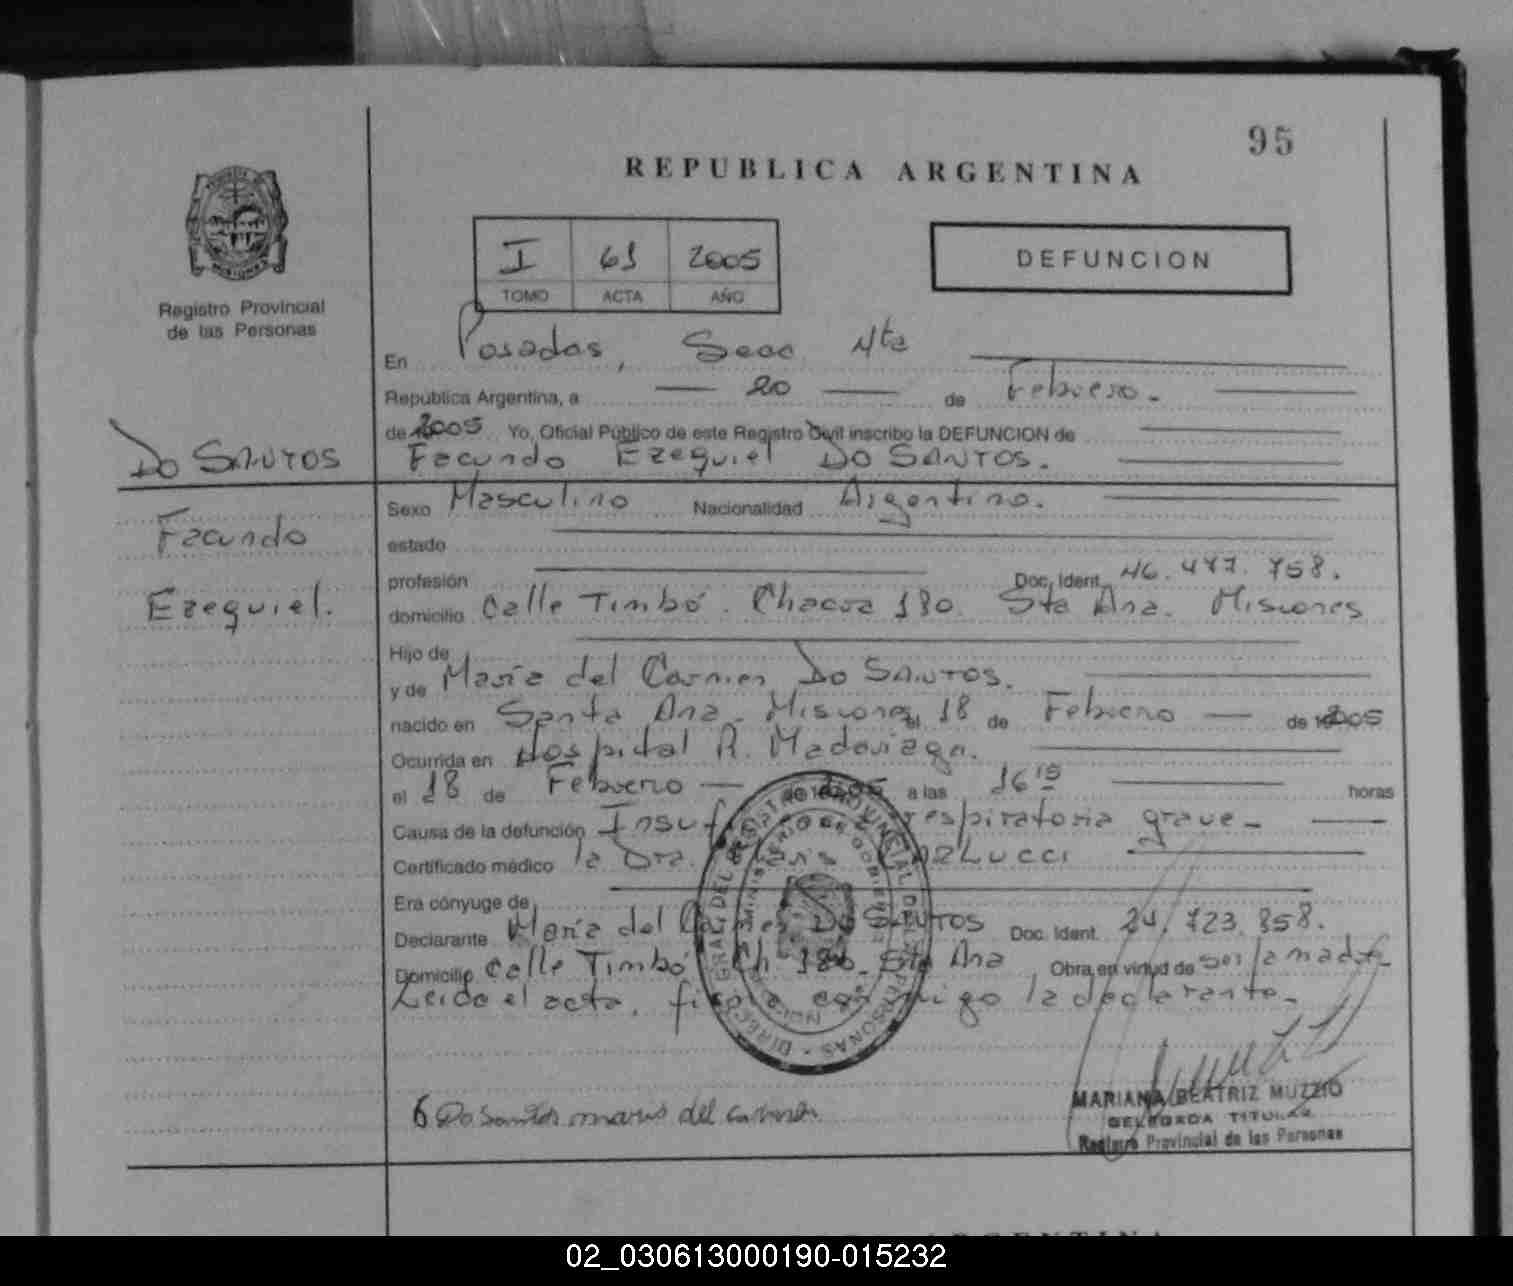 95
REPUBLICA ARGENTINA
I 61 2005
TOMO ACTA AÑO
DEFUNCION
MISIONES
Registro Provincial
de las Personas
En Posadas, Secc 4ta
República Argentina, a 20 de Febrero.
de 2005 Yo, Oficial Público de este Registro Civil inscribo la DEFUNCION de
Facundo Ezequiel DO SANTOS.
DO SANTOS
Facundo
Ezequiel.
Sexo Masculino Nacionalidad Argentina.
estado
profesión Doc. Ident. 46.477.758.
domicilio Calle Timbó. Chacra 180. Sta Ana. Misiones
Hijo de
y de María del Carmen DO SANTOS.
nacido en Santa Ana. Misiones el 18 de Febrero de 2005
Ocurrida en Hospital R. Madariaga.
el 18 de Febrero de 2005 a las 16 15 horas
Causa de la defunción respiratoria grave
Certificado médico la Dra.
Era cónyuge de
Declarante María del Carmen Do SANTOS Doc. Ident. 24.723.858.
Domicilio Calle Timbó Ch 180. Sta Ana Obra en virtud de ser la madre
Leída el acta, firma conmigo la declarante.
Do Santos maria del carmen
MARIANA BEATRIZ MUZZIO
DELEGADA TITULAR
Registro Provincial de las Personas
REGISTRO PROVINCIAL DE LAS PERSONAS
MINISTERIO DE GOBIERNO
ARGENTINA
02_030613000190-015232